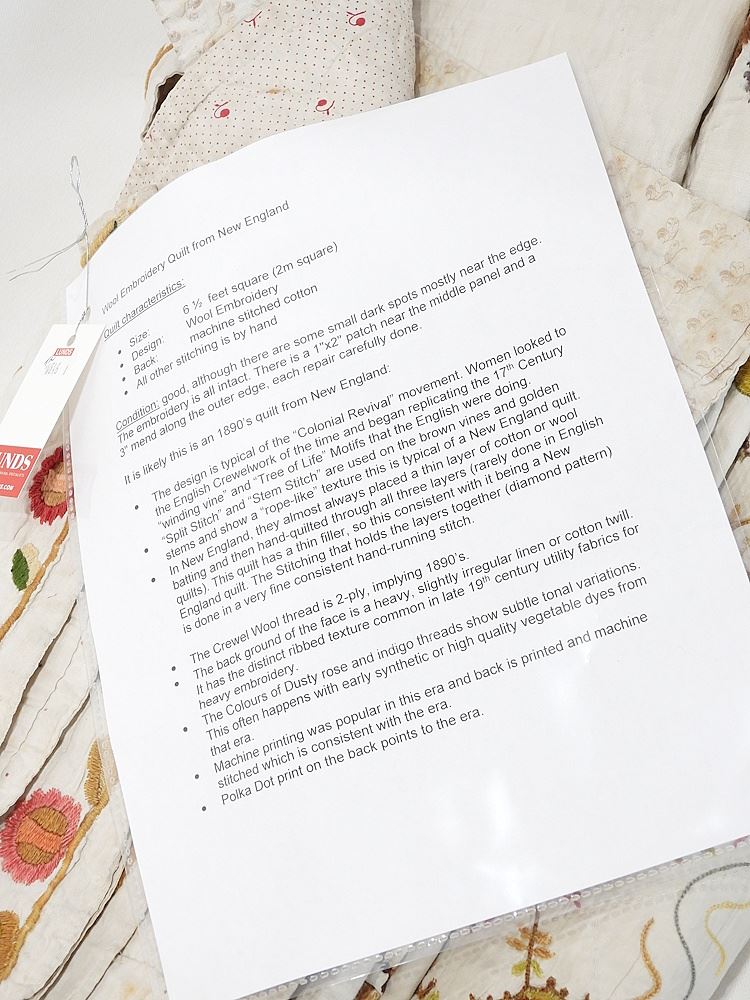 Wool Embroidery Quilt from New England
Quilt characteristics:
• Size: 6 ½ feet square (2m square)
• Design: Wool Embroidery
• Back: machine stitched cotton
• All other stitching is by hand
Condition: good, although there are some small dark spots mostly near the edge.
The embroidery is all intact. There is a 1"x2" patch near the middle panel and a
3" mend along the outer edge, each repair carefully done.
It is likely this is an 1890's quilt from New England:
• The design is typical of the "Colonial Revival" movement. Women looked to
the English Crewelwork of the time and began replicating the 17th Century
"winding vine" and "Tree of Life" Motifs that the English were doing.
• "Split Stitch" and "Stem Stitch" are used on the brown vines and golden
stems and show a "rope-like" texture this is typical of a New England quilt.
• In New England, they almost always placed a thin layer of cotton or wool
batting and then hand-quilted through all three layers (rarely done in English
quilts). This quilt has a thin filler, so this consistent with it being a New
England quilt. The Stitching that holds the layers together (diamond pattern)
is done in a very fine consistent hand-running stitch.
• The Crewel Wool thread is 2-ply, implying 1890's.
• The back ground of the face is a heavy, slightly irregular linen or cotton twill.
It has the distinct ribbed texture common in late 19th century utility fabrics for
heavy embroidery.
• The Colours of Dusty rose and indigo threads show subtle tonal variations.
This often happens with early synthetic or high quality vegetable dyes from
that era.
• Machine printing was popular in this era and back is printed and machine
stitched which is consistent with the era.
• Polka Dot print on the back points to the era.
LUNDS
UNDS